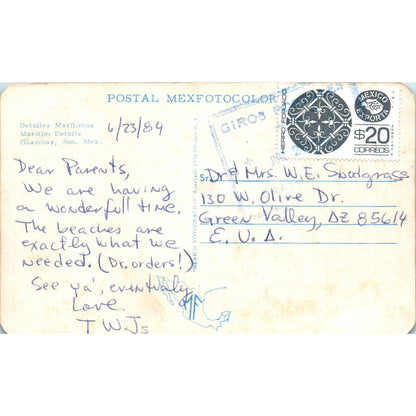 POSTAL MEXFOTOCOLOR
Detalles Marítimos
Maritim Details
Guaymas, Son. Mex.
6/23/84
Dear Parents,
We are having
a wonderfull time.
The beaches are
exactly what we
needed. (Dr. orders!)
See ya', eventually
Love.
TWJs
GIROS
HIERRO FORJADO
MEXICO
EXPORTA
$20
CORREOS
Sr Dr & Mrs. W. E. Snodgrass
130 W. Olive Dr.
Green Valley, AZ 85614
E. U. A.